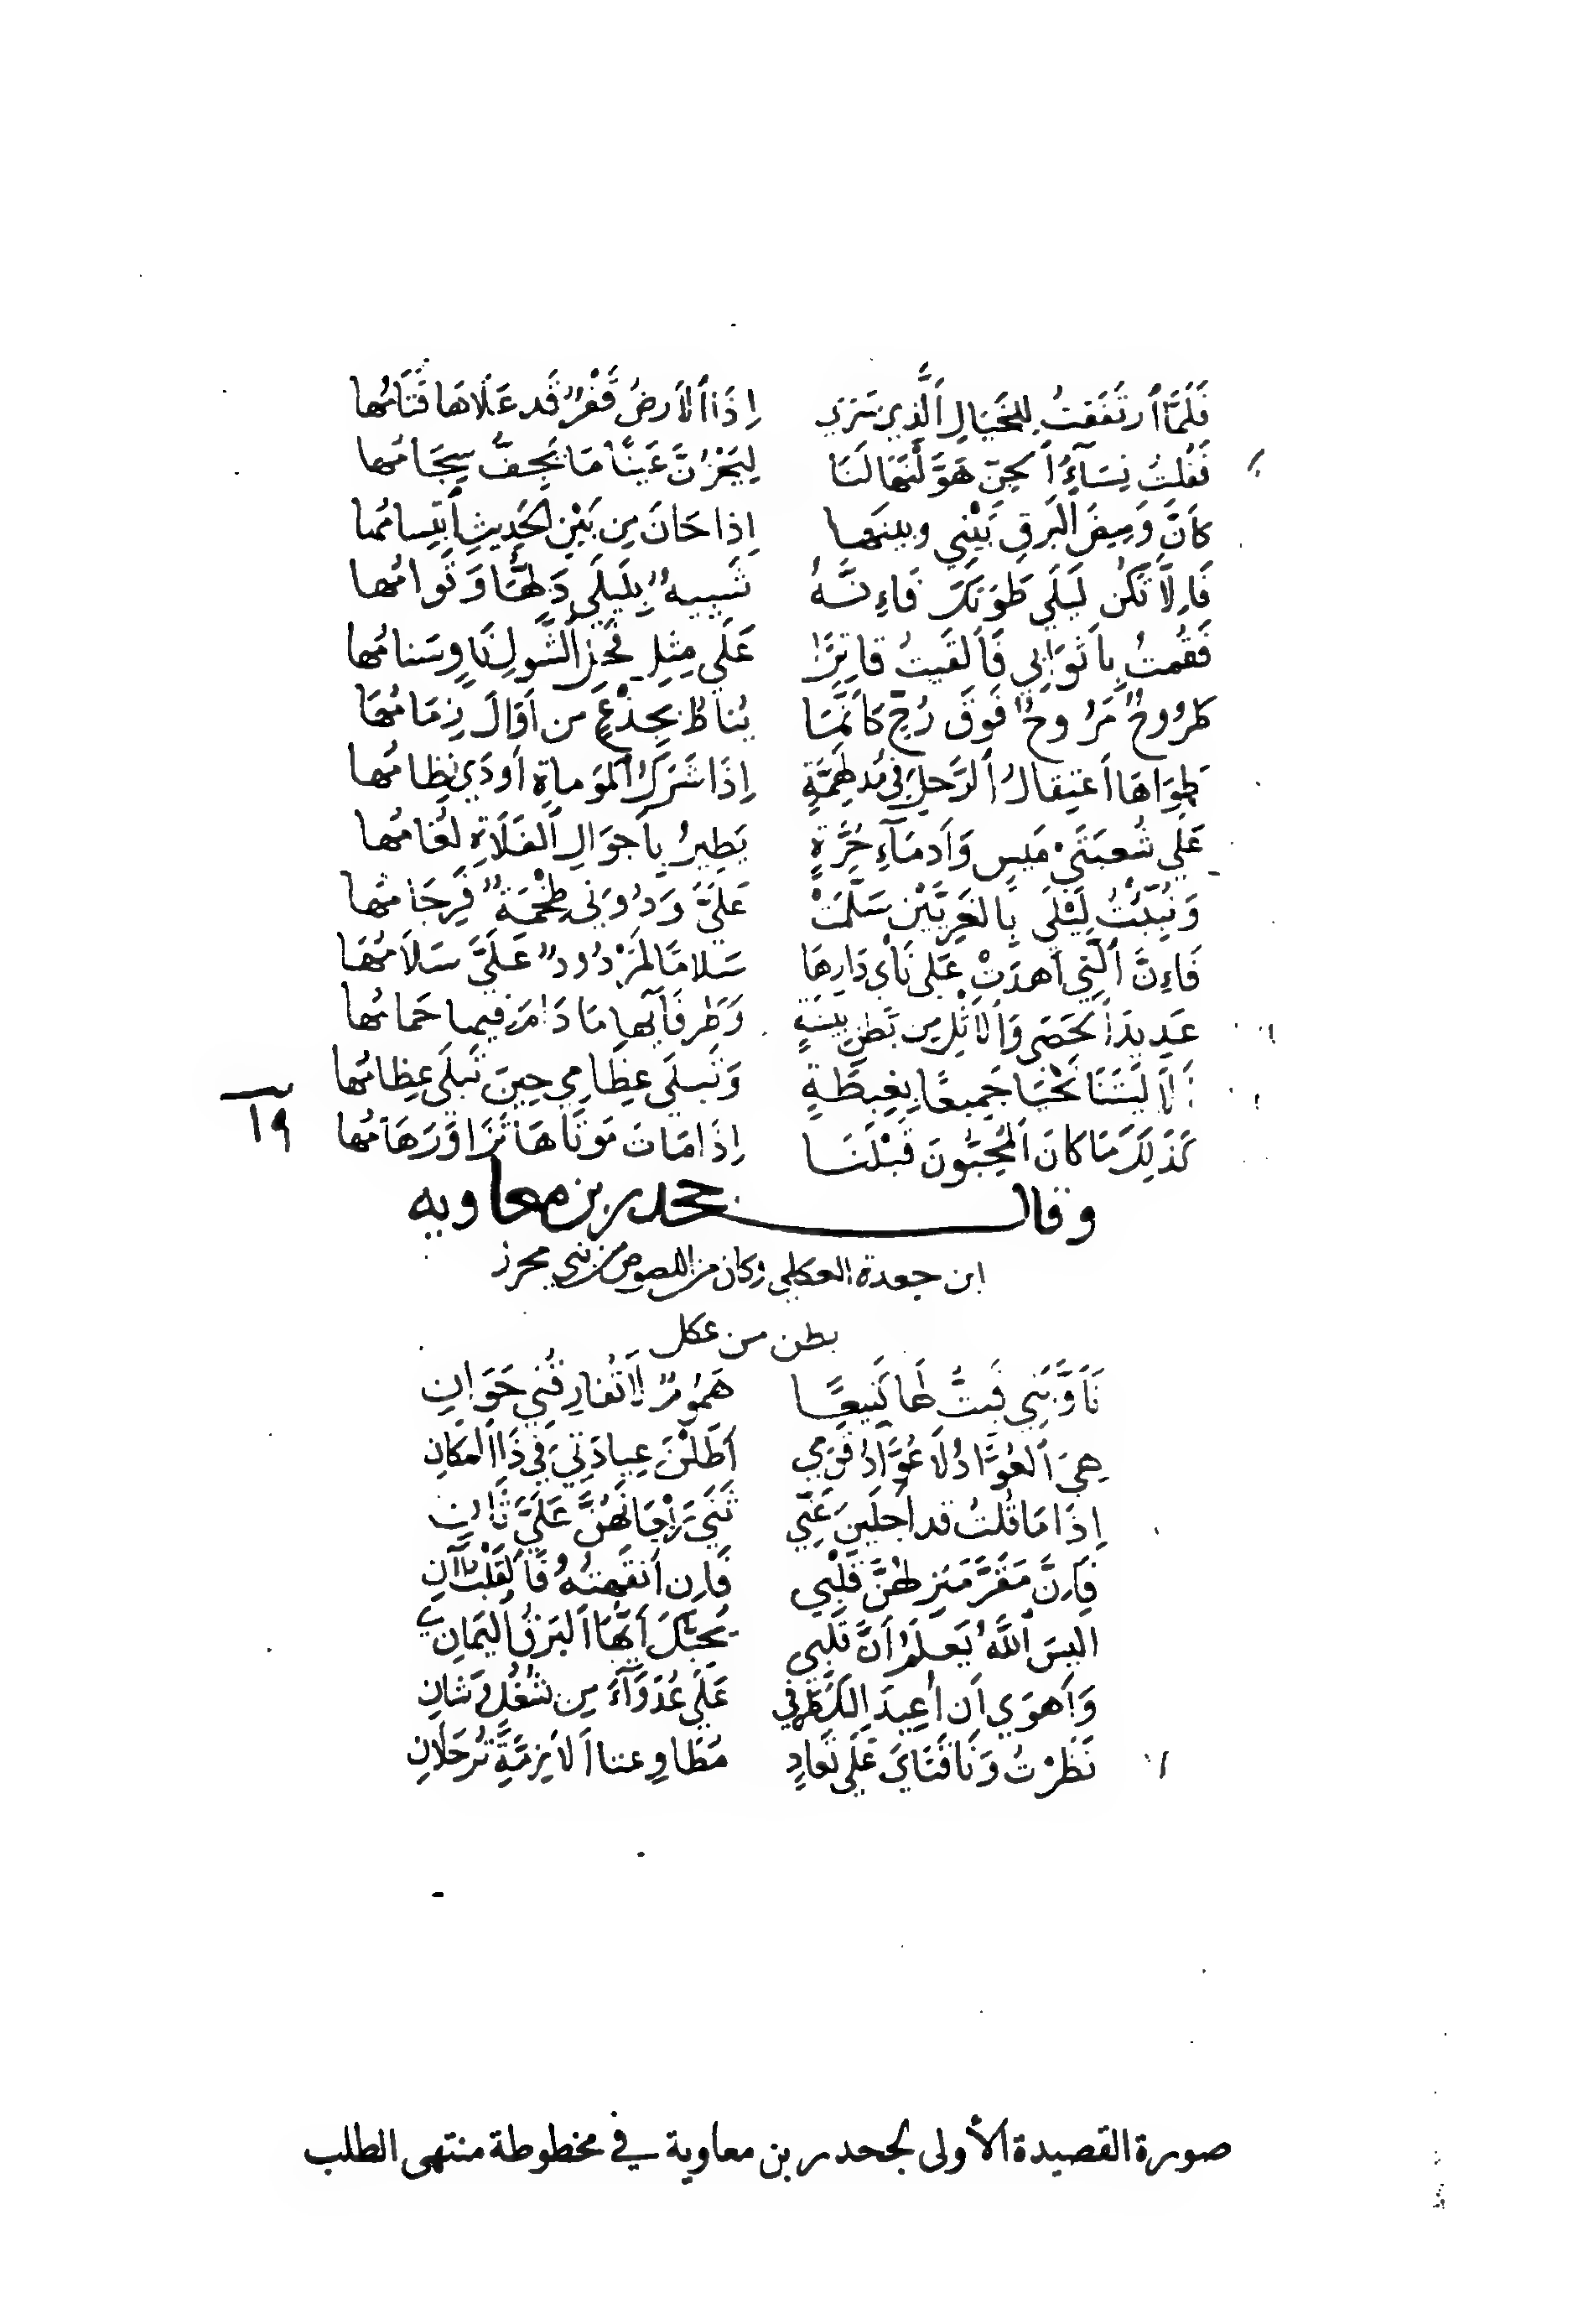 فَلَمَّا ٱرتَفَقتُ لِلخَيَالِ ٱلَّذِي سَرَي إِذَا ٱلأَرضُ قَفْرٌ قَد عَلَاهَا قَتَامُها
فَقُلتُ نِسَآءُ ٱلجِنِّ هَوَّلْنَهَا لَنَا لِيَحْزُنَّ عَينًا مَا يَجِفُّ سِجَامُها
كَأَنَّ وَمِيضَ ٱلبَرقِ بَيْنِي وبينَها إِذا حَانَ مِن بَيْنِ الحَدِيثِ ٱبتِسامُها
فَإِلَّا تَكُن لَيلَي طَوَتكَ فَإِنَّهُ شَبِيهٌ بِلَيلَي دَلُّهَا وَقَوامُها
فَقُمتُ بِأَثوَابِي فَأَلقَيتُ قَاتِرًا عَلَي مِثلِ فَحلِ ٱلشَّولِ نَاوٍ سَنامُها
طَرُوحٌ مَرُوحٌ فَوقَ رُحٍّ كَأَنَّمَا يُناطُ بِجِذْعٍ من أَوَالَ زِمَامُهَا
طَوَاهَا ٱعتِقالُ ٱلرَّحلِ في مُدلَهِمَّةٍ إِذَا شَرَكُ ٱلمَومَاةِ أَودَي نِظامُها
عَلَي شُعبَتَيْ مَيسٍ وَأَدمَآءِ حُرَّةٍ يَطِيرُ بِأَجوَالِ ٱلفَلَاةِ لُغامُها
وَنُبِّئْتُ لَيْلَي بِالغَرِيَّيْنِ سَلَّمَتْ عَلَيَّ وَدُونِي طِخْفَةٌ فَرِجَامُها
فَإِنَّ ٱلَّتِي أَهدَتْ عَلَي نَأْيِ دَارِهَا سَلامًا لَمَرْدُودٌ عَلَيَّ سَلَامُهَا
عَدِيدَ ٱلحَصَى وَٱلأَثْلِ مِن بَطنِ بِيشَةٍ وَطَرفَآئِها مَا دَامَ فِيها حَمَامُها
أَلَا لَيتَنَا نَحْيَا جَمِيعًا بِغِبطَةٍ وَتَبلَى عِظَامِي حِينَ تَبلَى عِظامُها
١٩
كَذَلِكَ مَا كَانَ ٱلمُحِبُّونَ قَبْلَنَا إِذَا مَاتَ مَوتَاهَا تَزَاوَرَ هَامُها
وقال جحدر بن معاويه
ابن جعدة العكلي وكان من اللصوص من بني محرز
بطن من عكل
تَأَوَّبَنِي فَبِتُّ لَها كَنِيعًا هُمُومٌ لَا تُفَارِقُنِي حَوَانِ
هِيَ ٱلعُوَّادُ لَا عُوَّادُ قَومِي أَطَلْنَ عِيادَتِي في ذَا ٱلمَكَانِ
إِذَا مَا قُلتُ قد أَجلَينَ عَنِّي ثَنَى رَيْعَانَهُنَّ عَلَيَّ ثَانِ
فَإِنَّ مَقَرَّ مَنزِلِهِنَّ قَلْبِي فَإِن أَنفَهنَهُ فَٱلقَلْبُ آنِ
أَلَيسَ ٱللَّهُ يَعلَمُ أَنَّ قَلبِي يُحِبُّكَ أَيُّهَا ٱلبَرقُ اليَمَانِي
وَأَهوَي أَن أُعِيدَ إِلَيكَ طَرفِي عَلَي عُدَوَآءَ مِن شُغُلٍ وَشَانِ
نَظَرْتُ وَنَاقَتَايَ عَلَي تَعَادٍ مُطَاوِعتا ٱلأَزِمَّةِ تُرحَلَانِ
صورة القصيدة الأولى لجحدر بن معاوية في مخطوطة منتهى الطلب